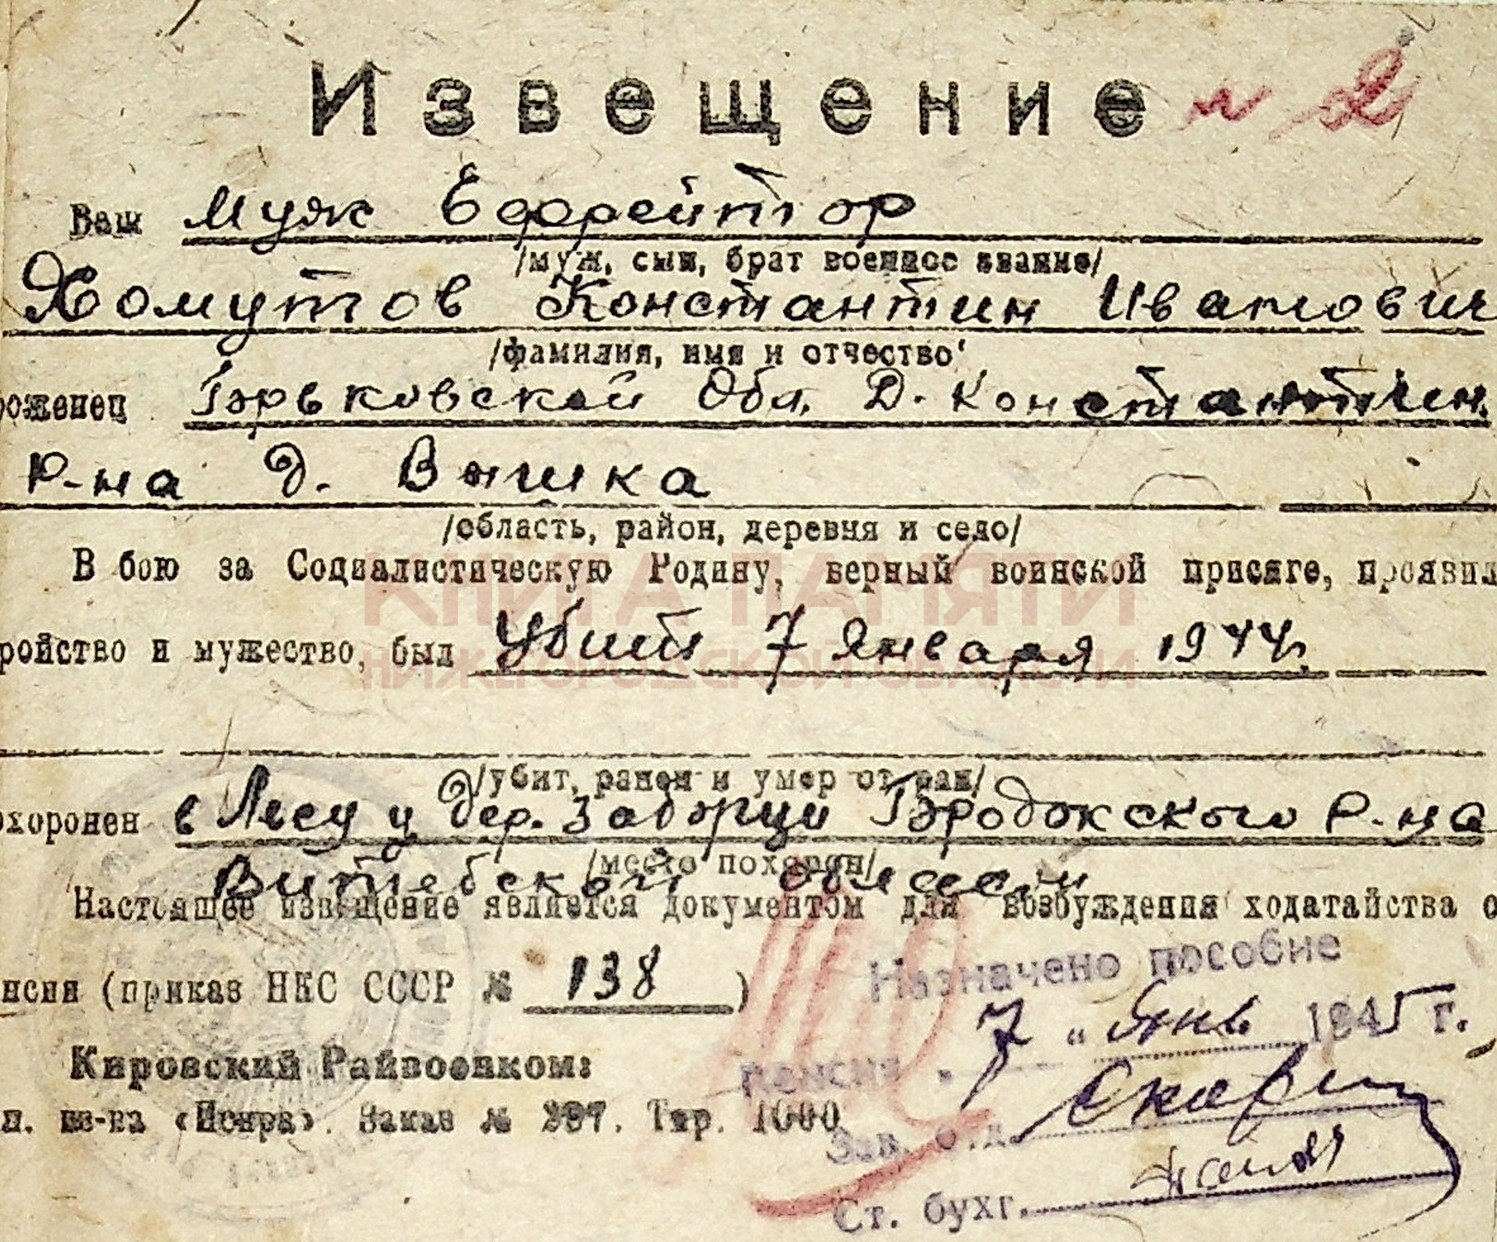 Извещение № 2
Ваш муж Ефрейтор
/муж, сын, брат военное звание/
Хомутов Константин Иванович
/фамилия, имя и отчество/
роженец Горьковской Обл. Д. Константин.
Р-на д. Вышка
/область, район, деревня и село/
В бою за Социалистическую Родину, верный воинской присяге, проявил
КНИГА ПАМЯТИ
ройство и мужество, был убит 7 января 1944г.
НИЖЕГОРОДСКОЙ ОБЛАСТИ
/убит, ранен и умер от ран/
охоронен в Лесу у дер. Заборци Городокского Р-на
/место похорон/
Витебской области
Настоящее извещение является документом для возбуждения ходатайства о
нсии (приказ НКС СССР № 138 )
Назначено пособие
пенсия „ 7 " Янв 1945 г.
Кировский Райвоенком:
п. из-ва «Искра». Заказ № 397. Тир. 1000
Зав. отд.
Ст. бухг.